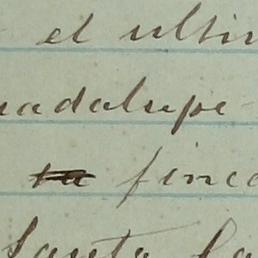 el ultim
uadalupe
finca
Santa